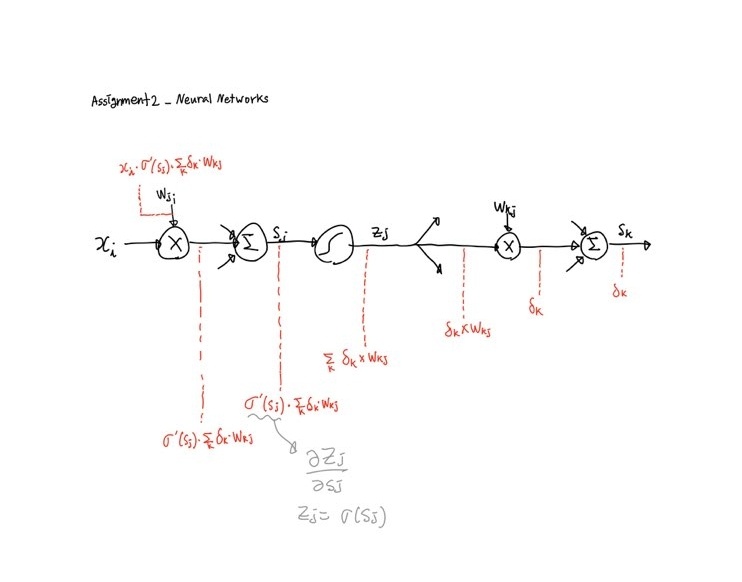 Assignment2 - Neural Networks
xᵢ · σ'(sⱼ) · Σₖ δₖ · wₖⱼ
wⱼᵢ
wₖⱼ
xᵢ
×
Σ
sⱼ
zⱼ
×
Σ
sₖ
δₖ
δₖ
δₖ × wₖⱼ
Σₖ δₖ × wₖⱼ
σ'(sⱼ) · Σₖ δₖ · wₖⱼ
σ'(sⱼ) · Σₖ δₖ · wₖⱼ
∂zⱼ
∂sⱼ
zⱼ = σ(sⱼ)